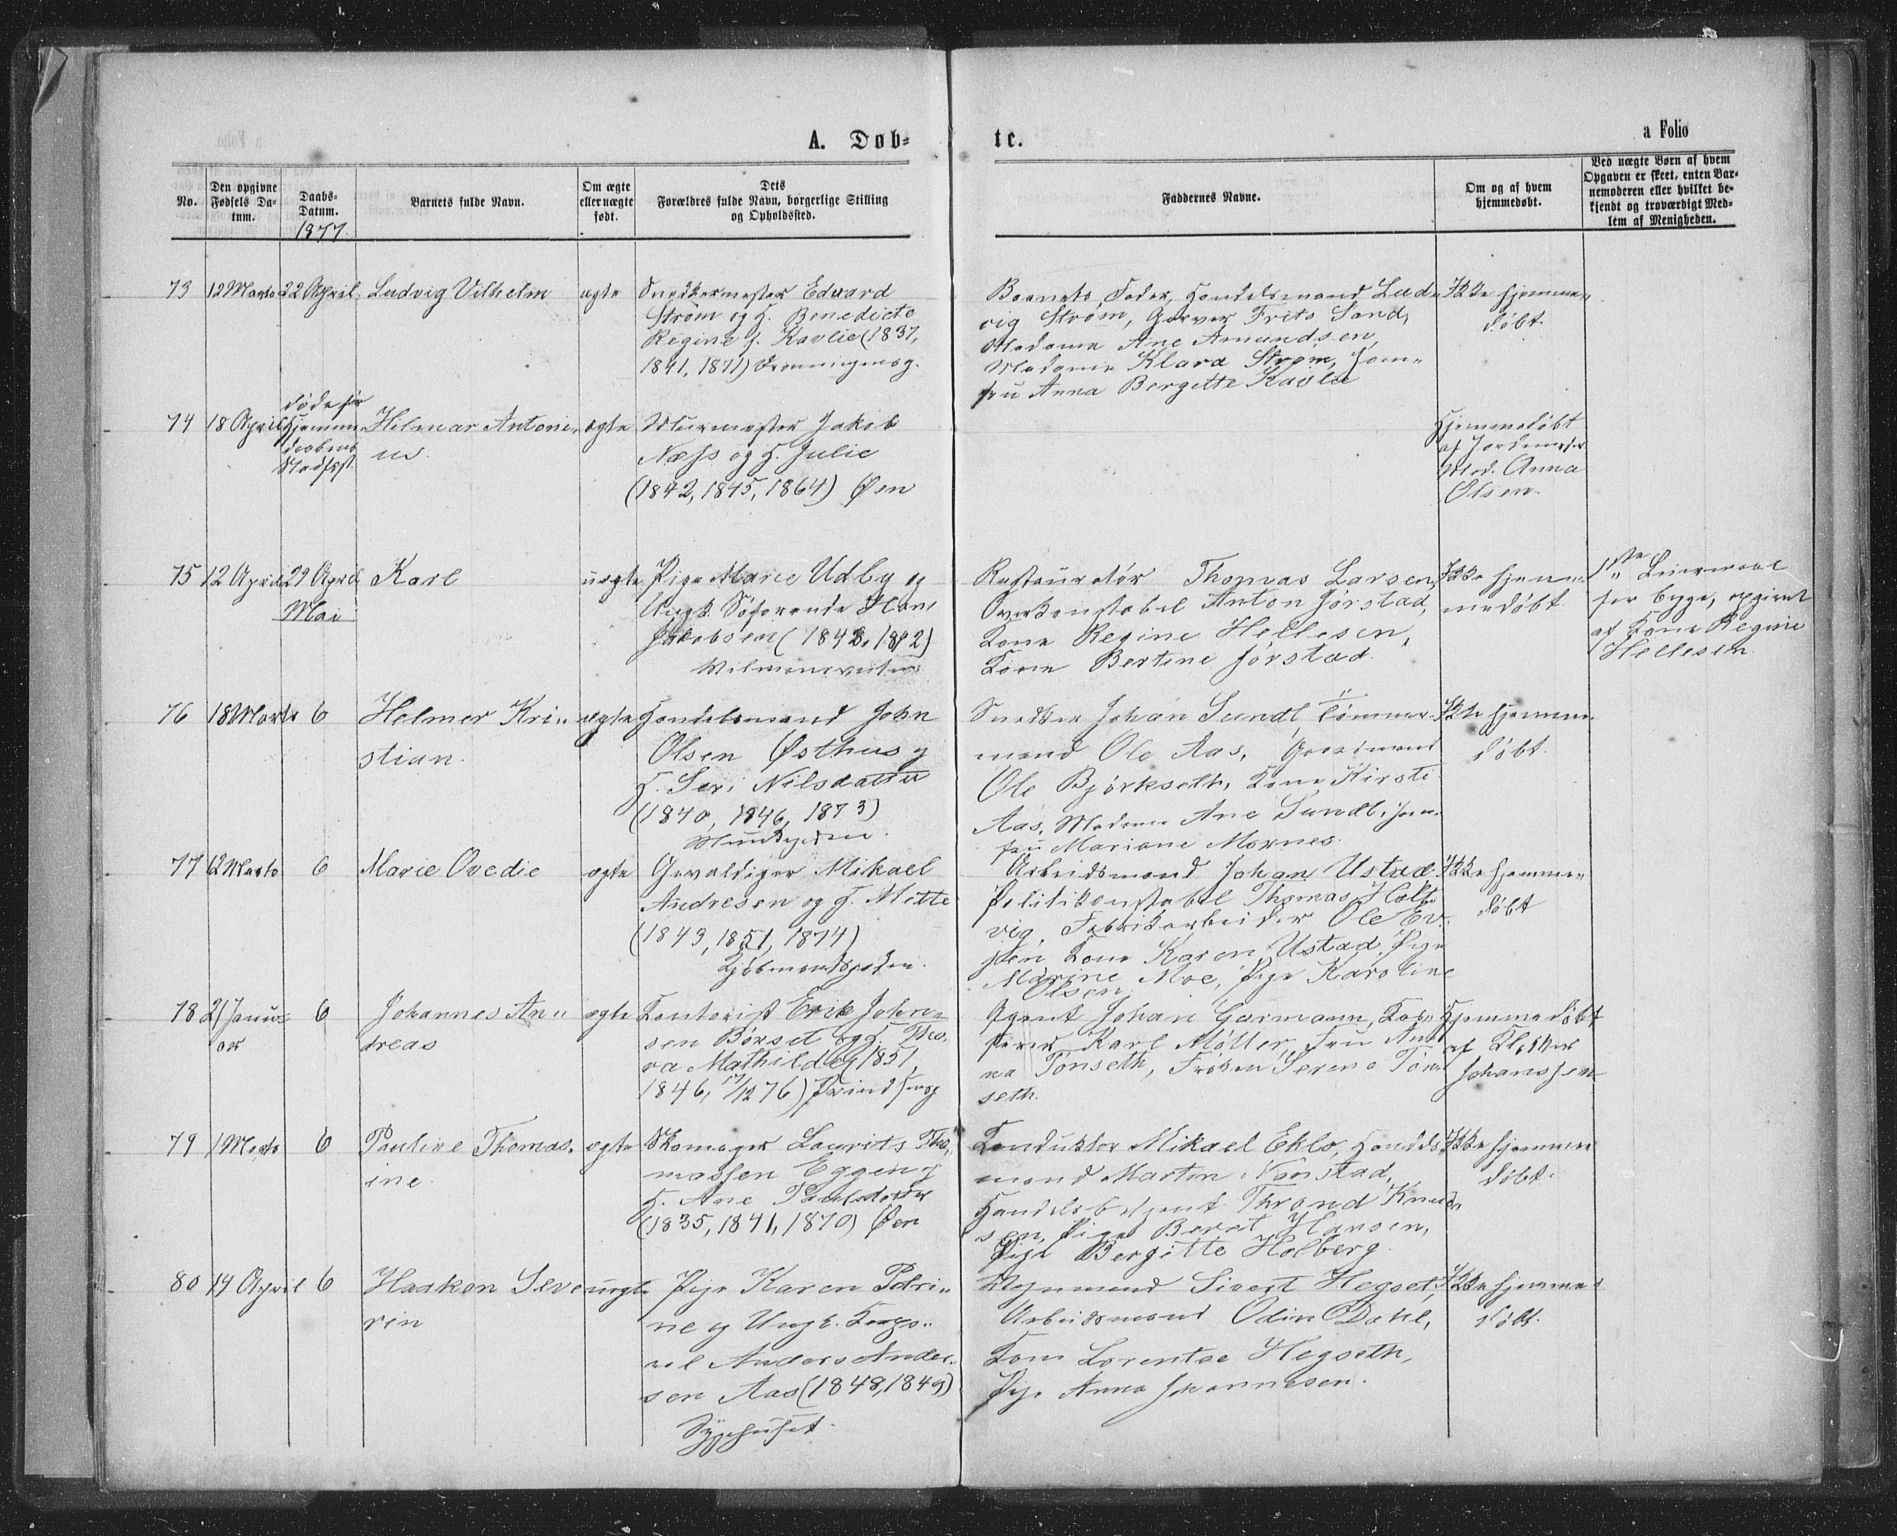 A. Døb-
te.
a Folio
No.
Den opgivne Fødsels Da-tum.
Daabs-Datum.
1877.
Barnets fulde Navn.
Om ægte eller uægte født.
Dets Forældres fulde Navn, borgerlige Stilling og Opholdssted.
Faddernes Navne.
Om og af hvem hjemmedøbt.
Ved uægte Børn af hvem Opgaven er skeet, enten Bar-nemoderen eller hvilket be-kjendt og troværdigt Med-lem af Menigheden.
73 12 Marts 22 April Ludvig Vilhelm ægte
Snedkermester Edvard
Strøm og H. Benedicte
Regine f. Kavlie (1837,
1841, 1871) Dronningensg.
Barnets Fader, Handelsmand Lud-
vig Strøm, Garver Frits Sand,
Madame Ane Amundsen,
Madame Klara Strøm, Jom-
fru Anna Bergitte Kavlie
Ikke hjemme-
døbt.
74 18 April
døde før
Hjemme-
daabens
Stadfæst.
Hilmar Antoni-
us.
ægte
Murmester Jakob
Næss og H. Julie
(1842, 1845, 1864) Øen
Hjemmedøbt
af Jordemoder
Mad. Anna
Olsen.
75 12 April 29 April Karl uægte
Mai
Pige Marie Udby og
Ungk. Søfarende Hans
Jakobsen (1843, 1842)
Restauratør Thomas Larsen,
Overkonstabel Anton Jørstad,
Kone Regine Hellesen,
Kone Bertine Jørstad.
Ikke hjem-
medøbt.
1ste Leiermaal
for begge, opgivet
af Kone Regine
Hellesen.
76 18 Marts 6 Helmer Kri-
stian.
ægte
Handelsmand John
Olsen Østhus og
H. Seri Nilsdatter
(1840, 1846, 1873)
Snedker Johan Sundt, Tømmer-
mand Ole Aas, Gaardmand
Ole Bjørkseth, Kone Kirsti
Aas, Madame Ane Sundt, Jom-
fru Mariane Mornes.
Ikke hjemme-
døbt.
77 12 Marts 6 Marie Ovedie ægte
Gevaldiger Mikael
Andresen og H. Mette
(1843, 1851, 1874)
Kjøbmandsgaden.
Arbeidsmand Johan Ustad
Politikonstabel Thomas Holt-
vig, Fabrikarbeider Ole Ev-
jen Kone Karen Ustad, Pige
Marine Moe, Pige Karoline
Olsen
Ikke hjemme-
døbt
78 21 Janu-
ar
6 Johannes An-
dreas
ægte
Kontorist Erik John-
sen Børset og H. Tho-
ra Mathilde (1851,
1846, 17/12 76) Prindsensg
Agent Johan Garmann, Kas-
serer Karl Møller, Fru An-
na Tønseth, Frøken Serene Tøn-
seth.
Hjemmedøbt
af Klokker
Johanssen
79 1 Marts 6 Pauline Thomas-
ine.
ægte
Skomager Laurits Tho-
massen Eggen og
H. Ane Paulsdatter
(1835, 1841, 1870) Øen
Konduktør Mikael Eklo, Handels-
mand Martin Nonstad,
Handelsbetjent Thrond Knud-
sen, Pige Beret Hansen,
Pige Bergitte Holberg.
Ikke hjemme-
døbt.
80 14 April 6 Haakon Seve-
rin
uægte
Pige Karen Petri-
ne og Ungk. Korpo-
ral Anders Ander-
sen Aas (1848, 1849)
Sygehuset.
Vognmand Sivert Hegset,
Arbeidsmand Odin Dahl,
Kone Lorentse Hegseth,
Pige Anna Johannesen.
Ikke hjemme-
døbt.